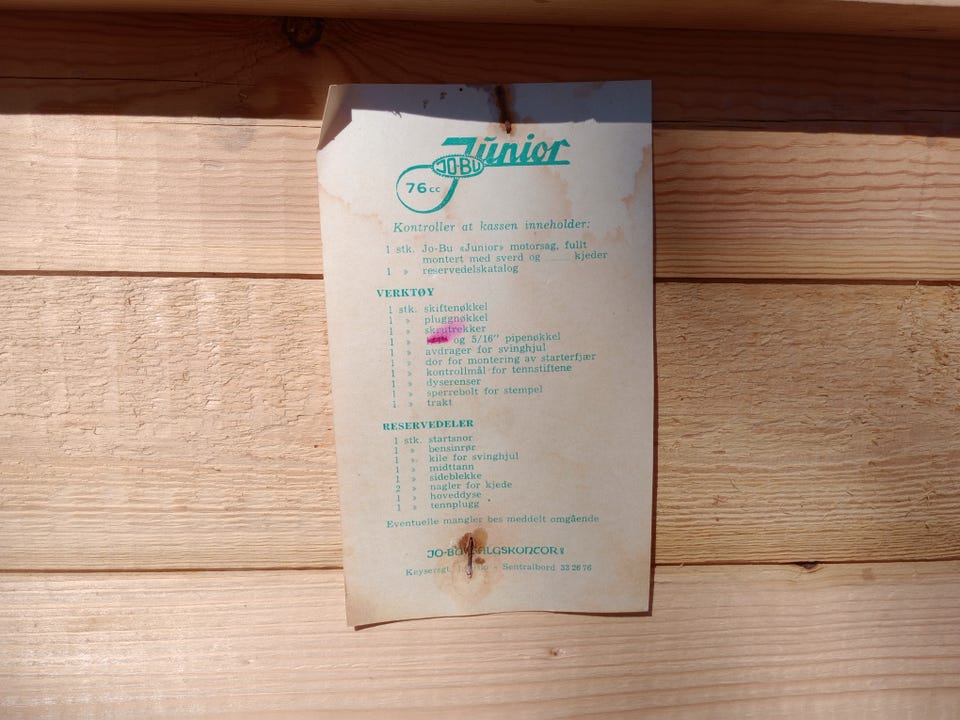 Junior
JO-BU
76 cc
Kontroller at kassen inneholder:
1 stk. Jo-Bu «Junior» motorsag, fullt
montert med sverd og ........ kjeder
1 » reservedelskatalog
VERKTØY
1 stk. skiftenøkkel
1 » pluggnøkkel
1 » skrutrekker
1 » og 5/16" pipenøkkel
1 » avdrager for svinghjul
1 » dor for montering av starterfjær
1 » kontrollmål for tennstiftene
1 » dyserenser
1 » sperrebolt for stempel
1 » trakt
RESERVEDELER
1 stk. startsnor
1 » bensinrør
1 » kile for svinghjul
1 » midttann
1 » sideblekke
2 » nagler for kjede
1 » hoveddyse
1 » tennplugg
Eventuelle mangler bes meddelt omgående
JO-BU SALGSKONTOR
Keysersgt. - Sentralbord 33 26 76